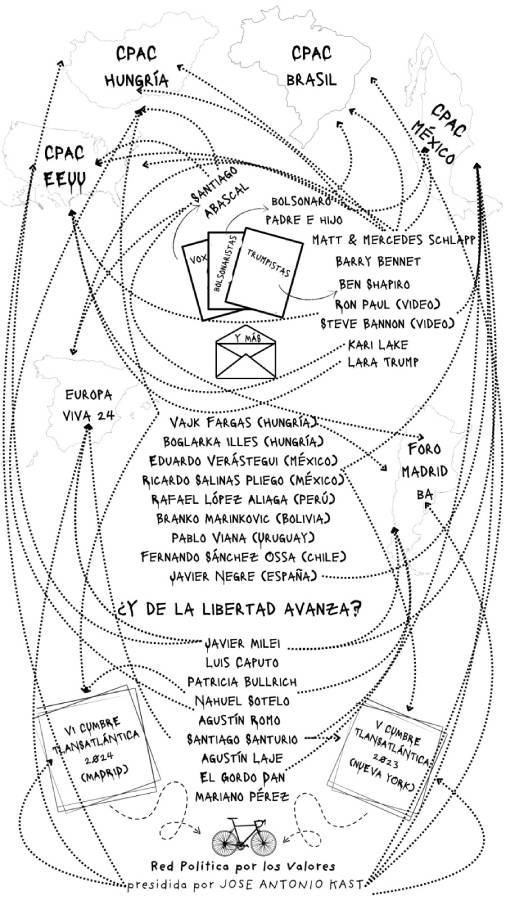 CPAC
HUNGRÍA
CPAC
BRASIL
CPAC
MÉXICO
CPAC
EEUU
SANTIAGO
ABASCAL
BOLSONARO
PADRE E HIJO
VOX
BOLSONARISTAS
TRUMPISTAS
MATT & MERCEDES SCHLAPP
BARRY BENNET
BEN SHAPIRO
RON PAUL (VIDEO)
STEVE BANNON (VIDEO)
KARI LAKE
LARA TRUMP
Y MÁS
EUROPA
VIVA 24
FORO
MADRID
BA
VAJK FARGAS (HUNGRÍA)
BOGLARKA ILLES (HUNGRÍA)
EDUARDO VERÁSTEGUI (MÉXICO)
RICARDO SALINAS PLIEGO (MÉXICO)
RAFAEL LÓPEZ ALIAGA (PERÚ)
BRANKO MARINKOVIC (BOLIVIA)
PABLO VIANA (URUGUAY)
FERNANDO SÁNCHEZ OSSA (CHILE)
JAVIER NEGRE (ESPAÑA)
¿Y DE LA LIBERTAD AVANZA?
JAVIER MILEI
LUIS CAPUTO
PATRICIA BULLRICH
NAHUEL SOTELO
AGUSTÍN ROMO
SANTIAGO SANTURIO
AGUSTÍN LAJE
EL GORDO DAN
MARIANO PÉREZ
VI CUMBRE
TLANSATLÁNTICA
2024
(MADRID)
V CUMBRE
TLANSATLÁNTICA
2023
(NUEVA YORK)
Red Política por los Valores
presidida por JOSE ANTONIO KAST